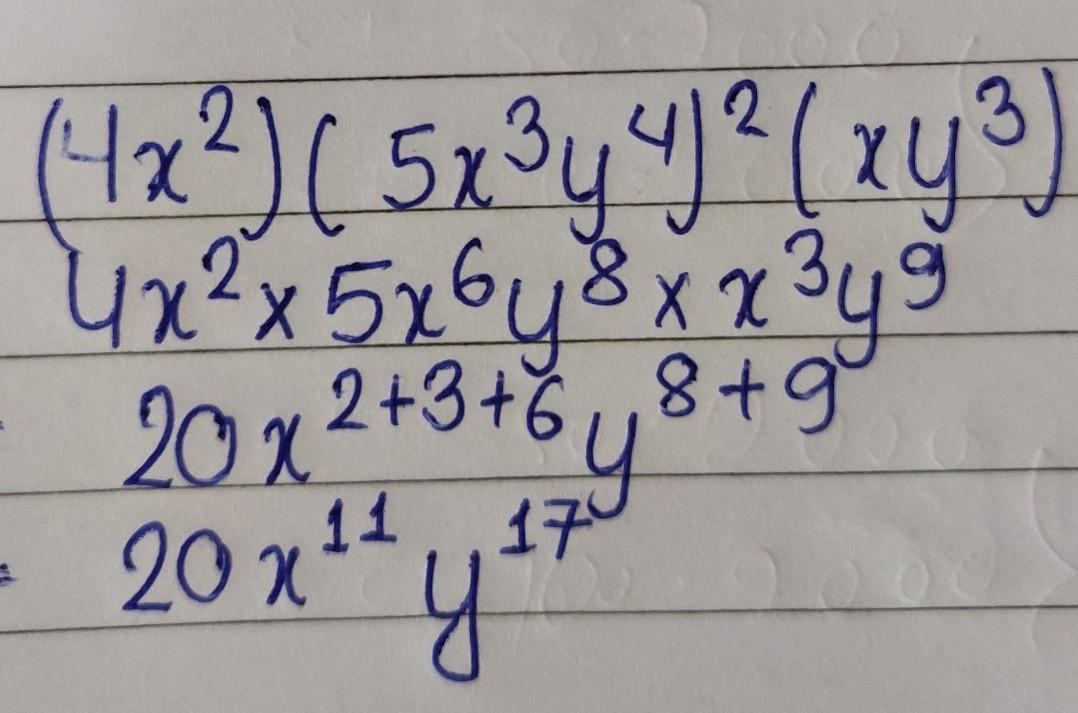 (4x²)(5x³y⁴)²(xy³)
4x² × 5x⁶y⁸ × x³y⁹
20x²⁺³⁺⁶y⁸⁺⁹
= 20x¹¹y¹⁷